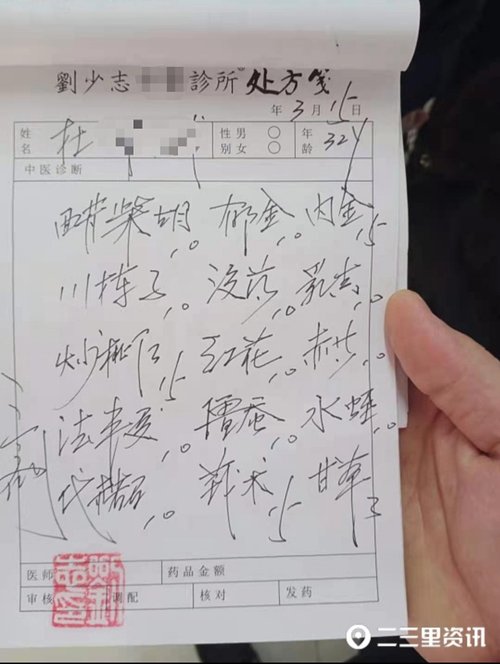 劉少志 診所 处方笺
年 3 月 15 日
姓名 杜 性别 男 女 年龄 32岁
中医诊断
醋柴胡10 郁金10 内金15
川楝子10 没药10 乳香10
炒桃仁15 红花10 赤芍10
法半夏10 僵蚕10 水蛭10
代赭石10 莪术15 甘草3
医师 药品金额
审核 调配 核对 发药
二三里资讯